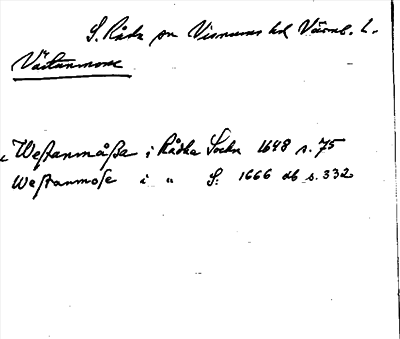 S. Råda sn Visnums hd Värml. L.
Västanmose
Westanmåssa i Råda Sockn 1648 s. 75
Westanmose i " S: 1666 db s. 332